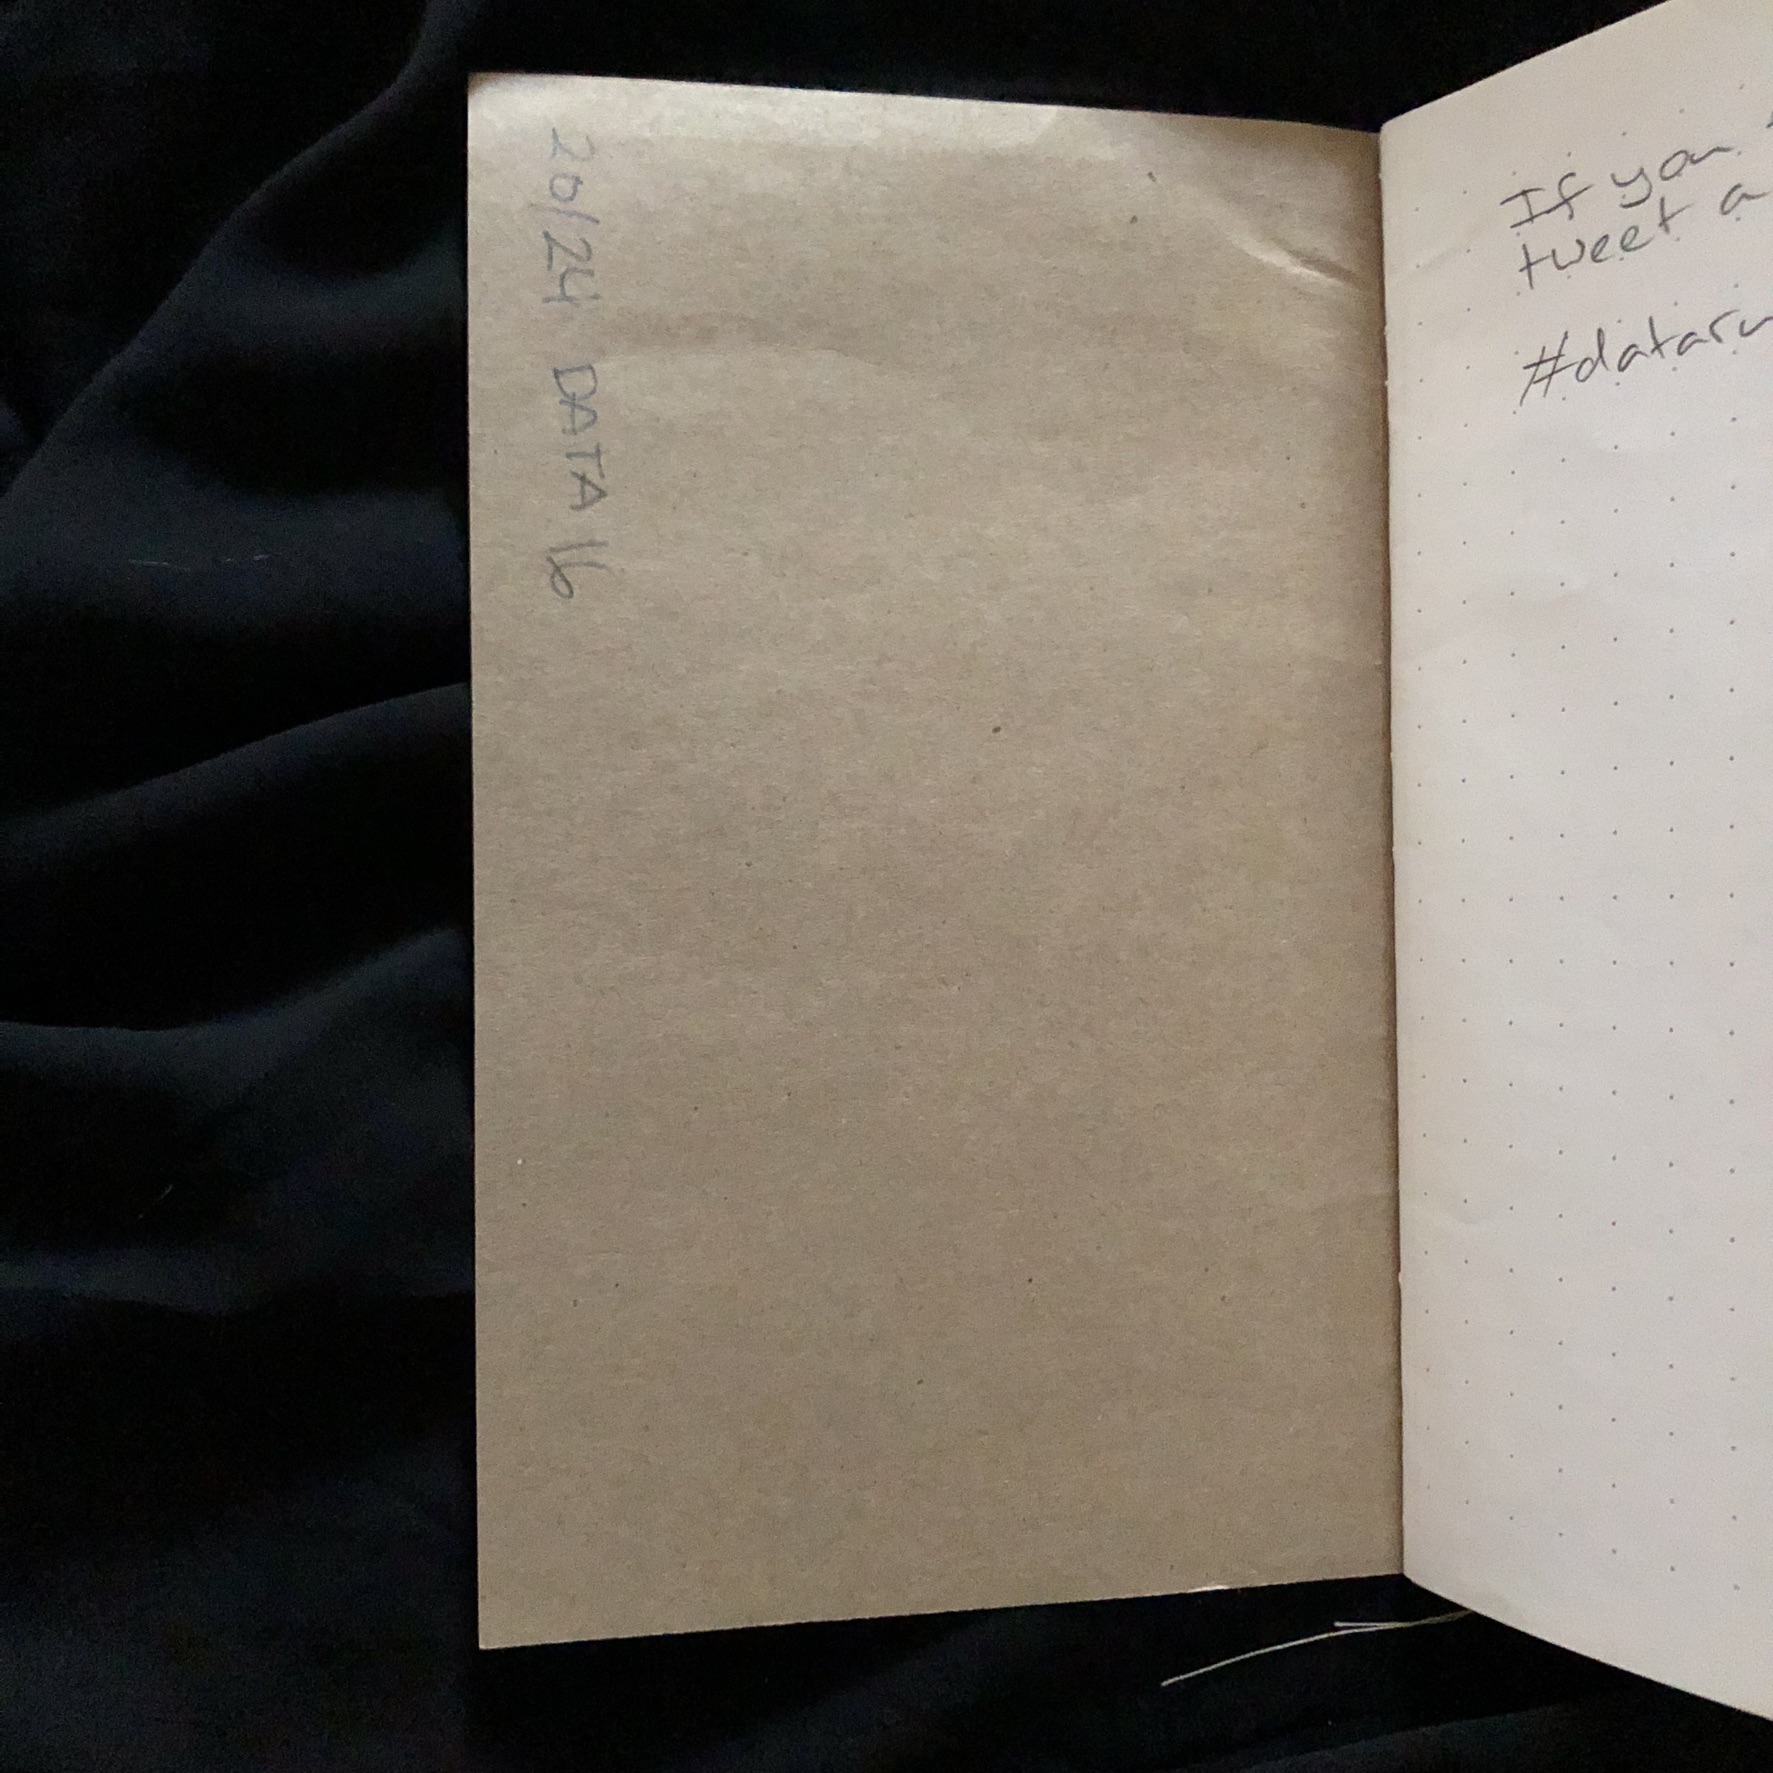 20/24 DATA 16
If you
tweet a
#dataru